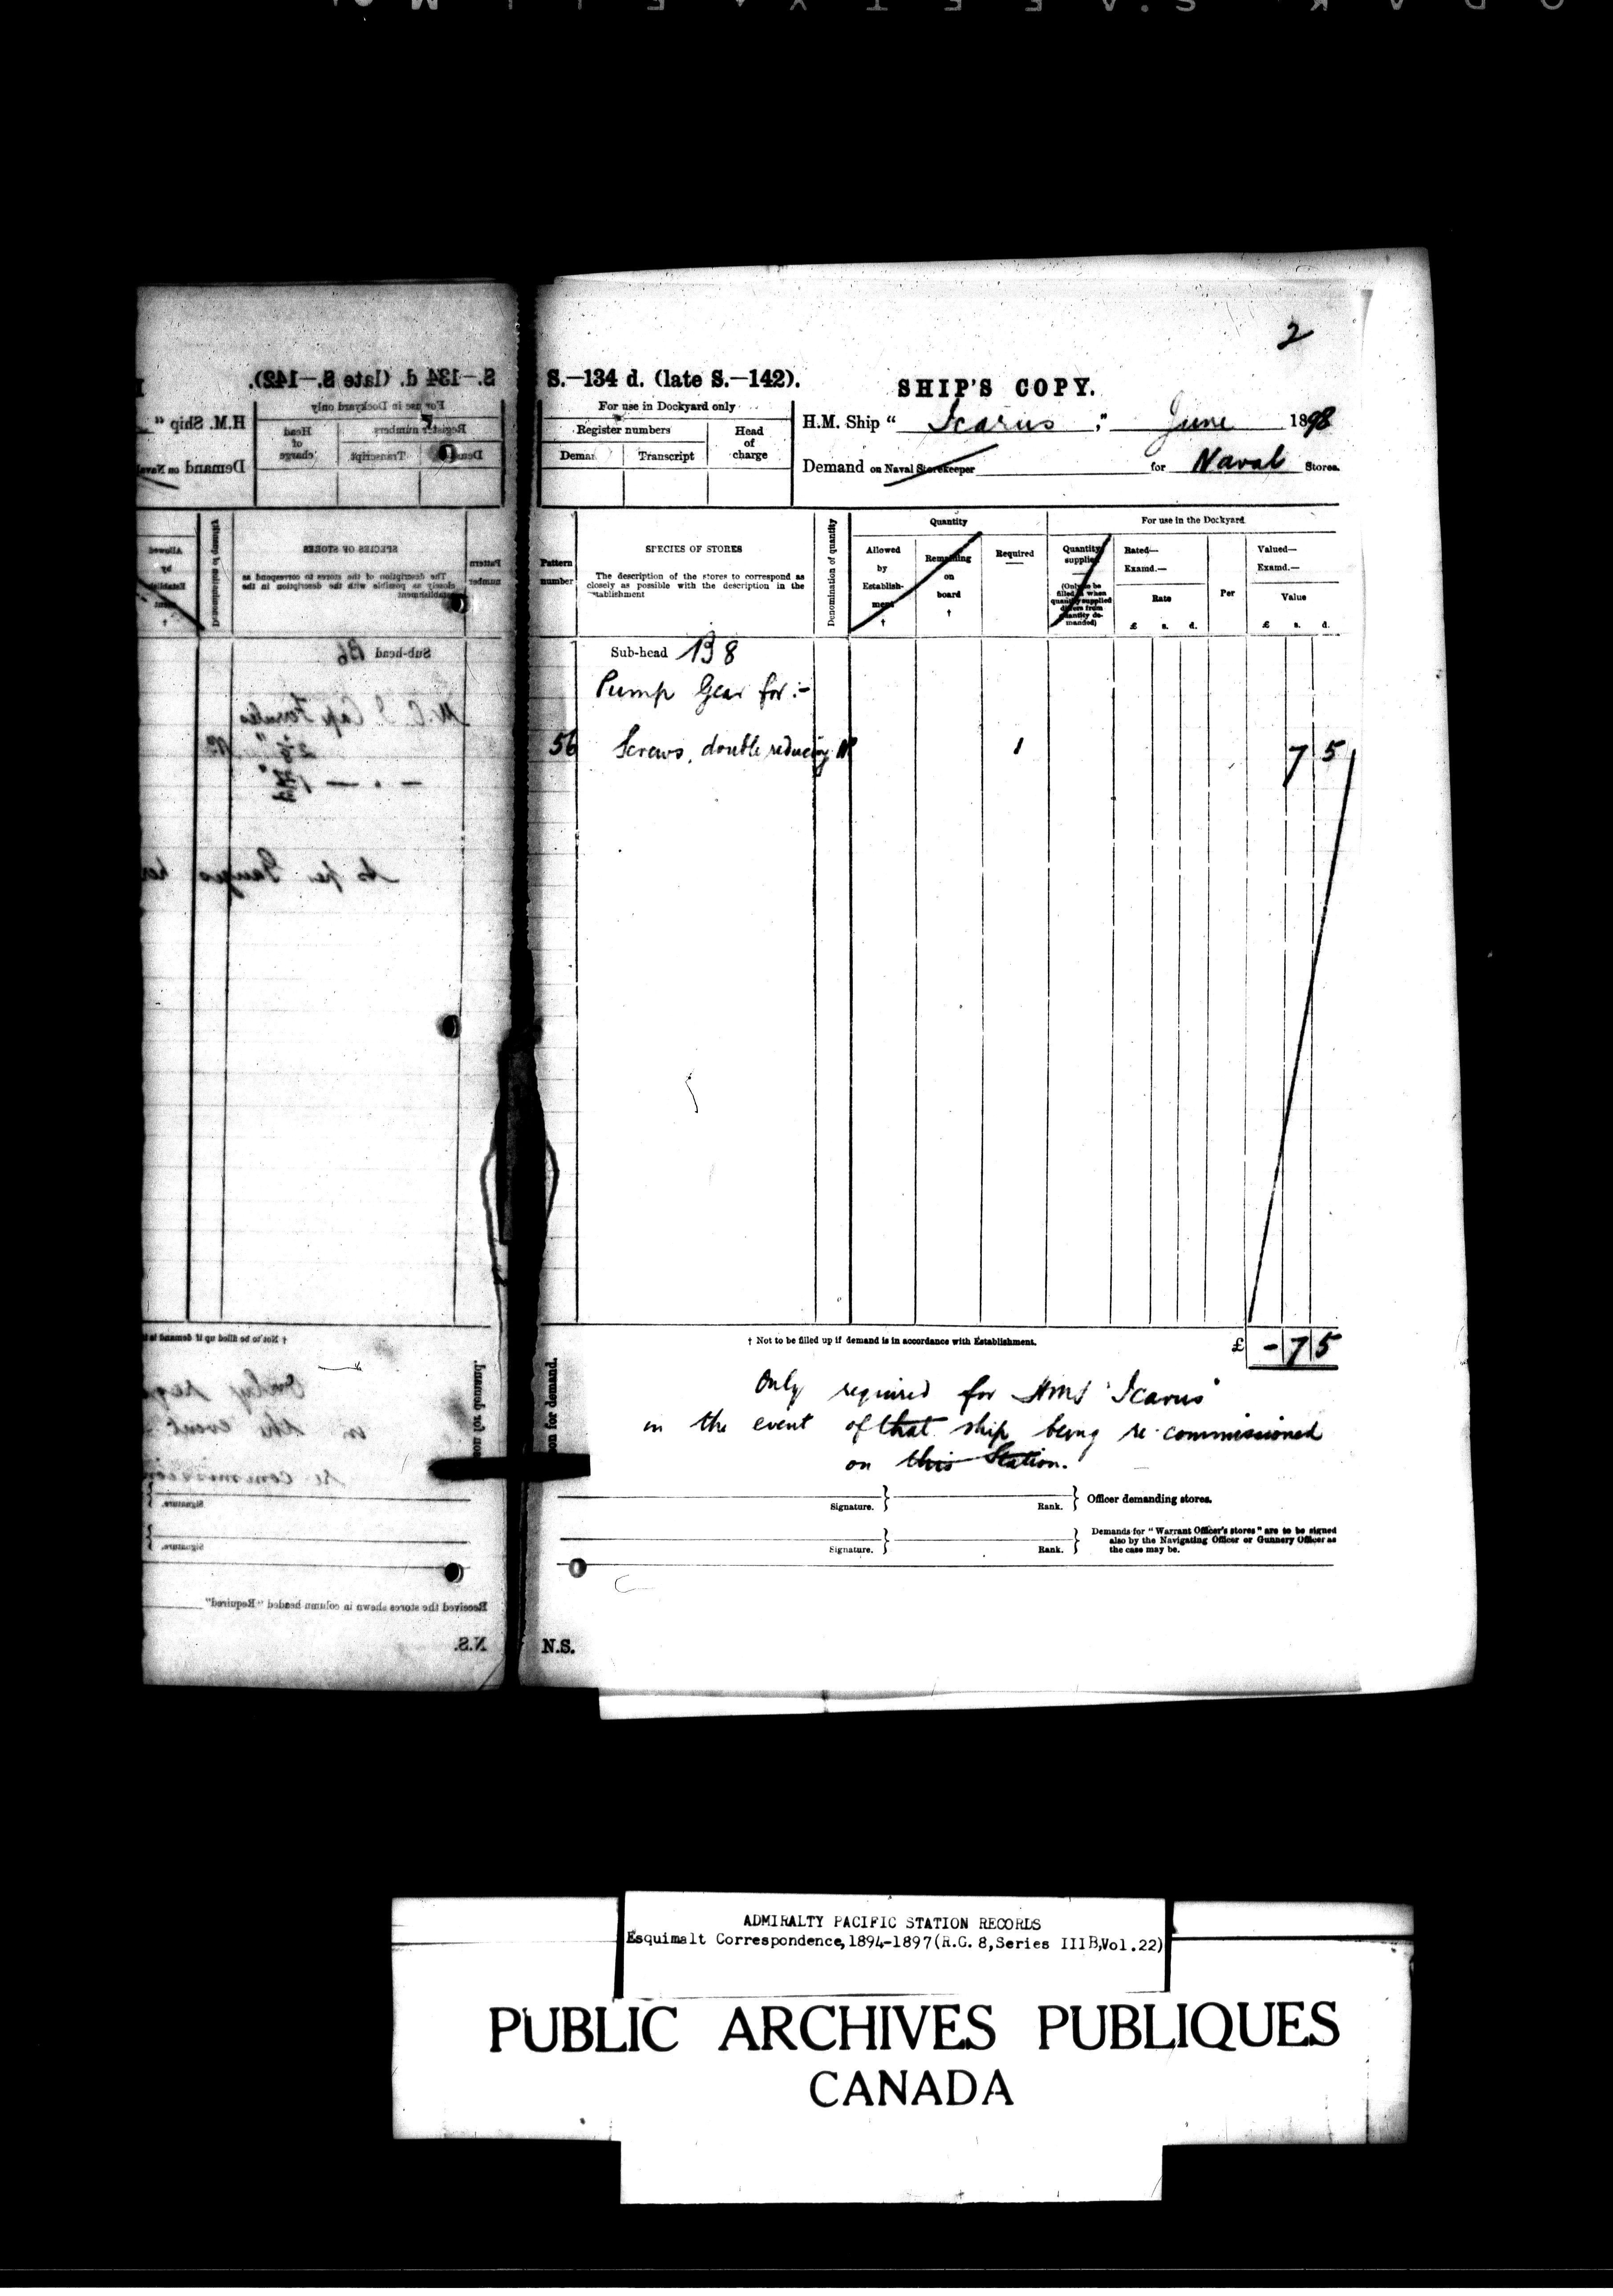 2
S.—134 d. (late S.—142).
SHIP'S COPY.
For use in Dockyard only
Register numbers
Head of charge
Transcript
H.M. Ship “ Icarus ,” June 1898
Demand on Naval Storekeeper for Naval Stores.
Pattern number
SPECIES OF STORES
The description of the stores to correspond as closely as possible with the description in the establishment
Denomination of quantity
Quantity
Allowed by Establish-ment †
Remaining on board †
Required
For use in the Dockyard
Quantity supplied
(Only to be filled in when quantity supplied differs from quantity de-manded)
Rated—
Examd.—
Rate
£ s. d.
Per
Valued—
Examd.—
Value
£ s. d.
Sub-head B 8
Pump Gear for :-
56 Screws, double reducing No 1 7 5
† Not to be filled up if demand is in accordance with Establishment.
£ - 7 5
Only required for HMS "Icarus"
in the event of that ship being re-commissioned
on this Station.
Signature. Rank. Officer demanding stores.
Signature. Rank. Demands for “Warrant Officer's stores” are to be signed
also by the Navigating Officer or Gunnery Officer as
the case may be.
N.S.
ADMIRALTY PACIFIC STATION RECORDS
Esquimalt Correspondence,1894-1897(R.G. 8,Series IIIB,Vol.22)
PUBLIC ARCHIVES PUBLIQUES
CANADA